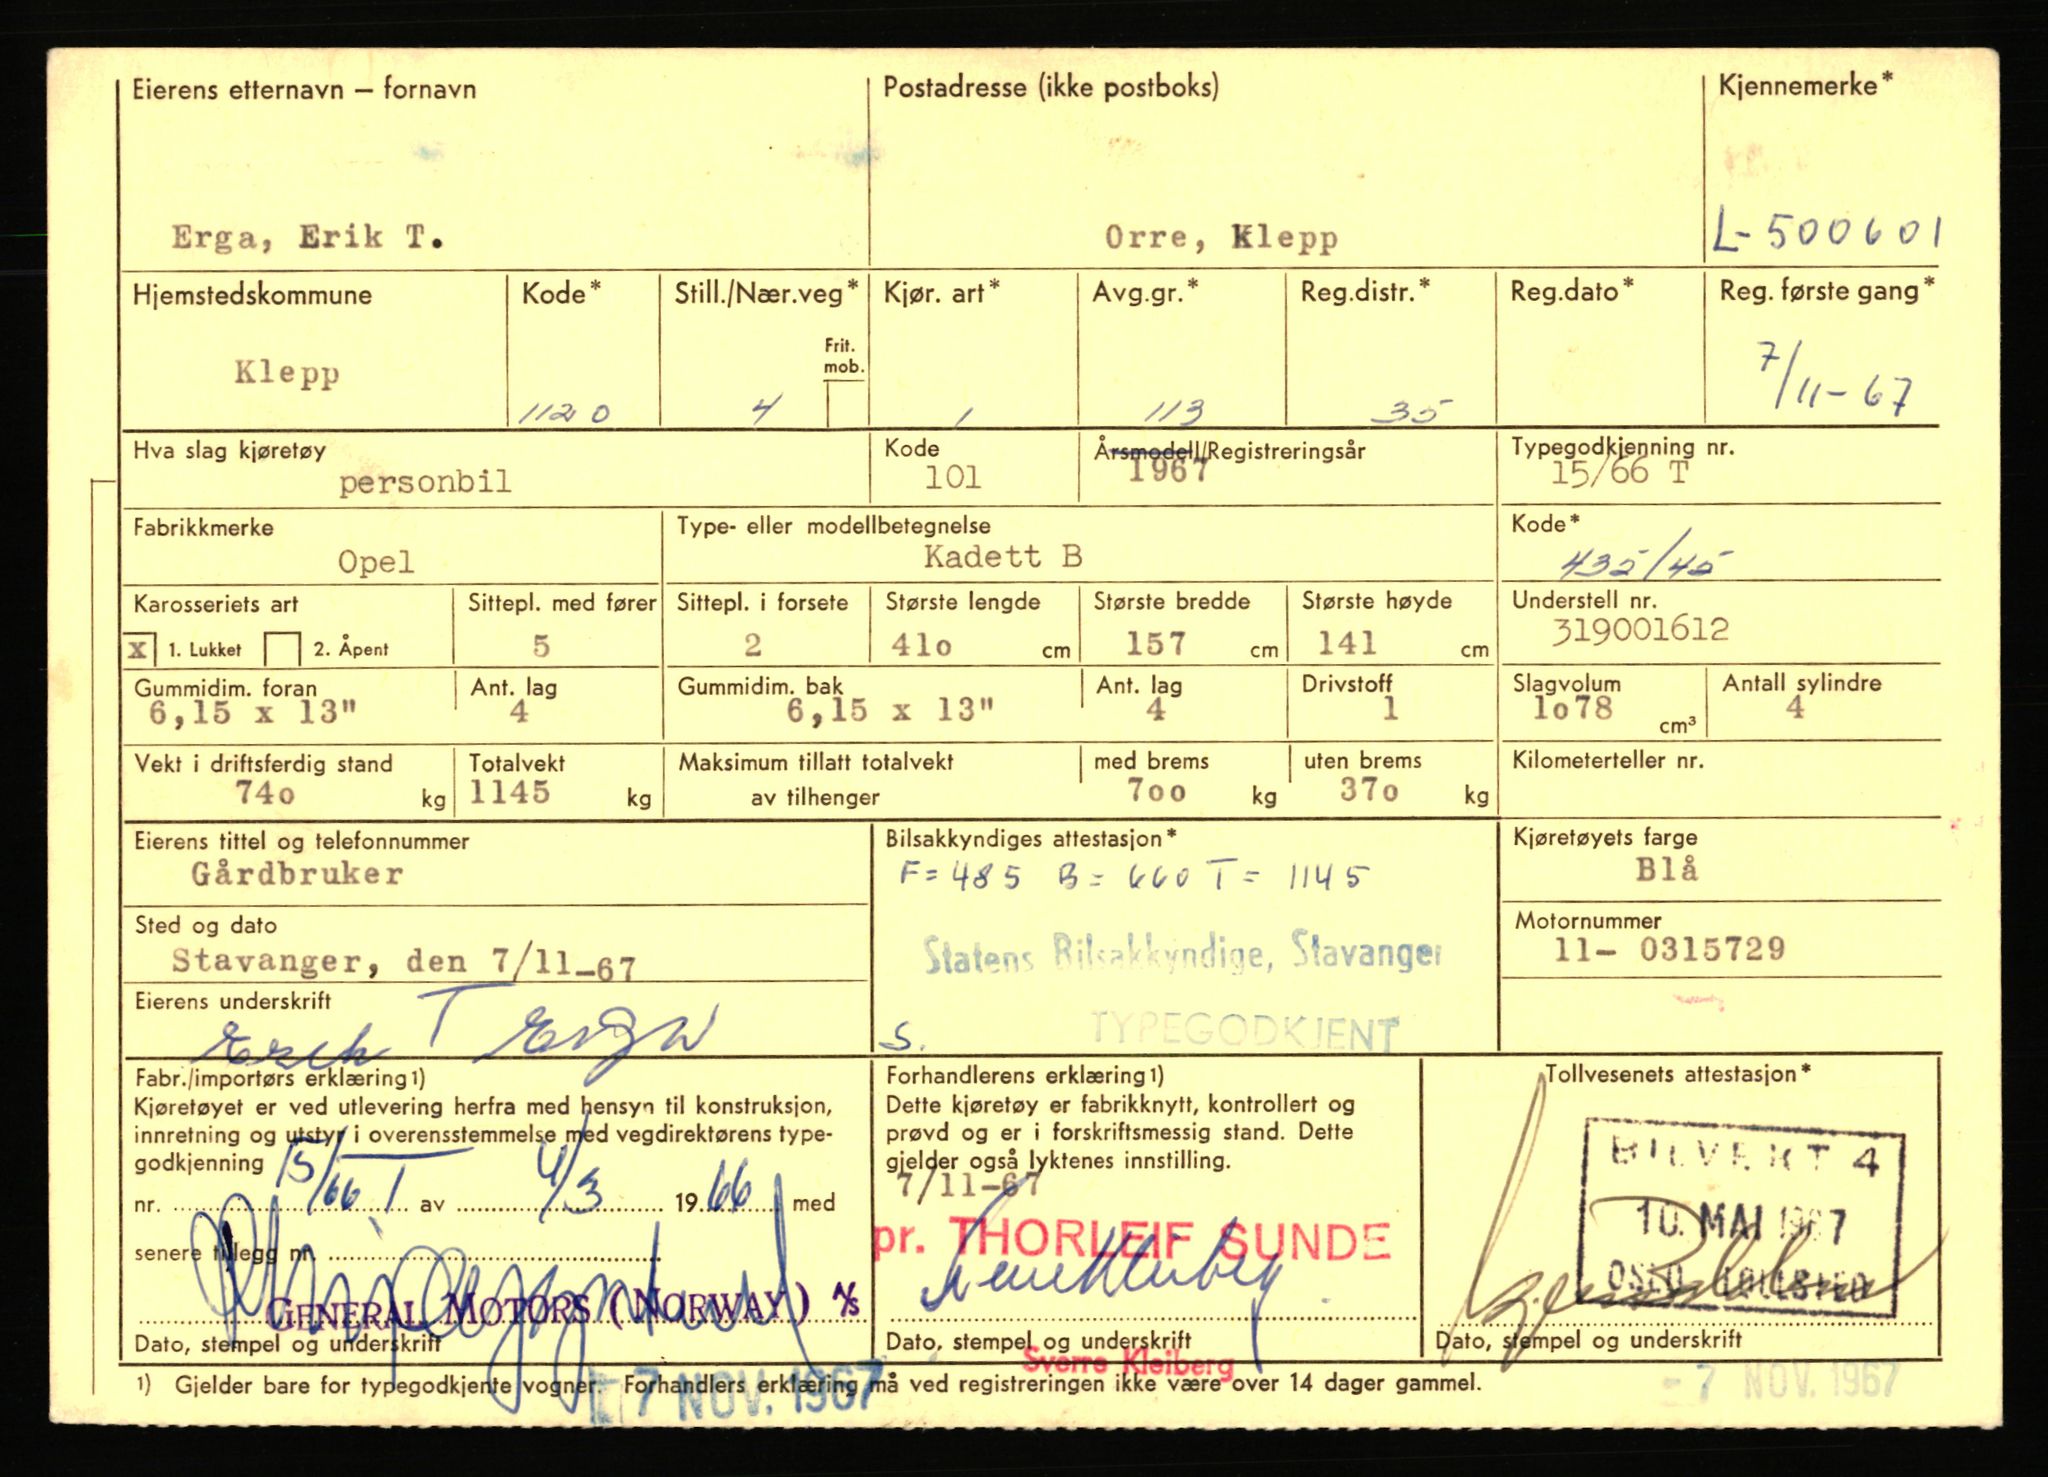 Eierens etternavn – fornavn Postadresse (ikke postboks) Kjennemerke*
Erga, Erik T. Orre, Klepp L-500601
Hjemstedskommune Kode* Still./Nær.veg* Kjør. art* Avg.gr.* Reg.distr.* Reg.dato* Reg. første gang*
Frit.
mob.
Klepp 1120 4 1 113 35 7/11-67
Hva slag kjøretøy Kode Årsmodell/Registreringsår Typegodkjenning nr.
personbil 101 1967 15/66 T
Fabrikkmerke Type- eller modellbetegnelse Kode*
Opel Kadett B 435/45
Karosseriets art Sittepl. med fører Sittepl. i forsete Største lengde Største bredde Største høyde Understell nr.
x 1. Lukket 2. Åpent 5 2 41o cm 157 cm 141 cm 319001612
Gummidim. foran Ant. lag Gummidim. bak Ant. lag Drivstoff Slagvolum Antall sylindre
6,15 x 13" 4 6,15 x 13" 4 1 1o78 cm³ 4
Vekt i driftsferdig stand Totalvekt Maksimum tillatt totalvekt med brems uten brems Kilometerteller nr.
74o kg 1145 kg av tilhenger 7oo kg 37o kg
Eierens tittel og telefonnummer Bilsakkyndiges attestasjon* Kjøretøyets farge
Gårdbruker F = 485 B = 660 T = 1145 Blå
Sted og dato Motornummer
Stavanger, den 7/11-67 Statens Bilsakkyndige, Stavanger 11- 0315729
Eierens underskrift
Erik T Erga S. TYPEGODKJENT
Fabr./importørs erklæring1) Forhandlerens erklæring1) Tollvesenets attestasjon*
Kjøretøyet er ved utlevering herfra med hensyn til konstruksjon, Dette kjøretøy er fabrikknytt, kontrollert og
innretning og utstyr i overensstemmelse med vegdirektørens type- prøvd og er i forskriftsmessig stand. Dette
godkjenning gjelder også lyktenes innstilling.
BILVEKT 4
nr. 15/66 T av 4/3 1966 med 7/11-67
10. MAI 1967
senere tillegg nr. pr. THORLEIF SUNDE
OSLO TOLLSTED
GENERAL MOTORS (NORWAY) A/S
Dato, stempel og underskrift Dato, stempel og underskrift Dato, stempel og underskrift
Sverre Kleiberg
1) Gjelder bare for typegodkjente vogner. Forhandlers erklæring må ved registreringen ikke være over 14 dager gammel.
7 NOV. 1967 - 7 NOV. 1967